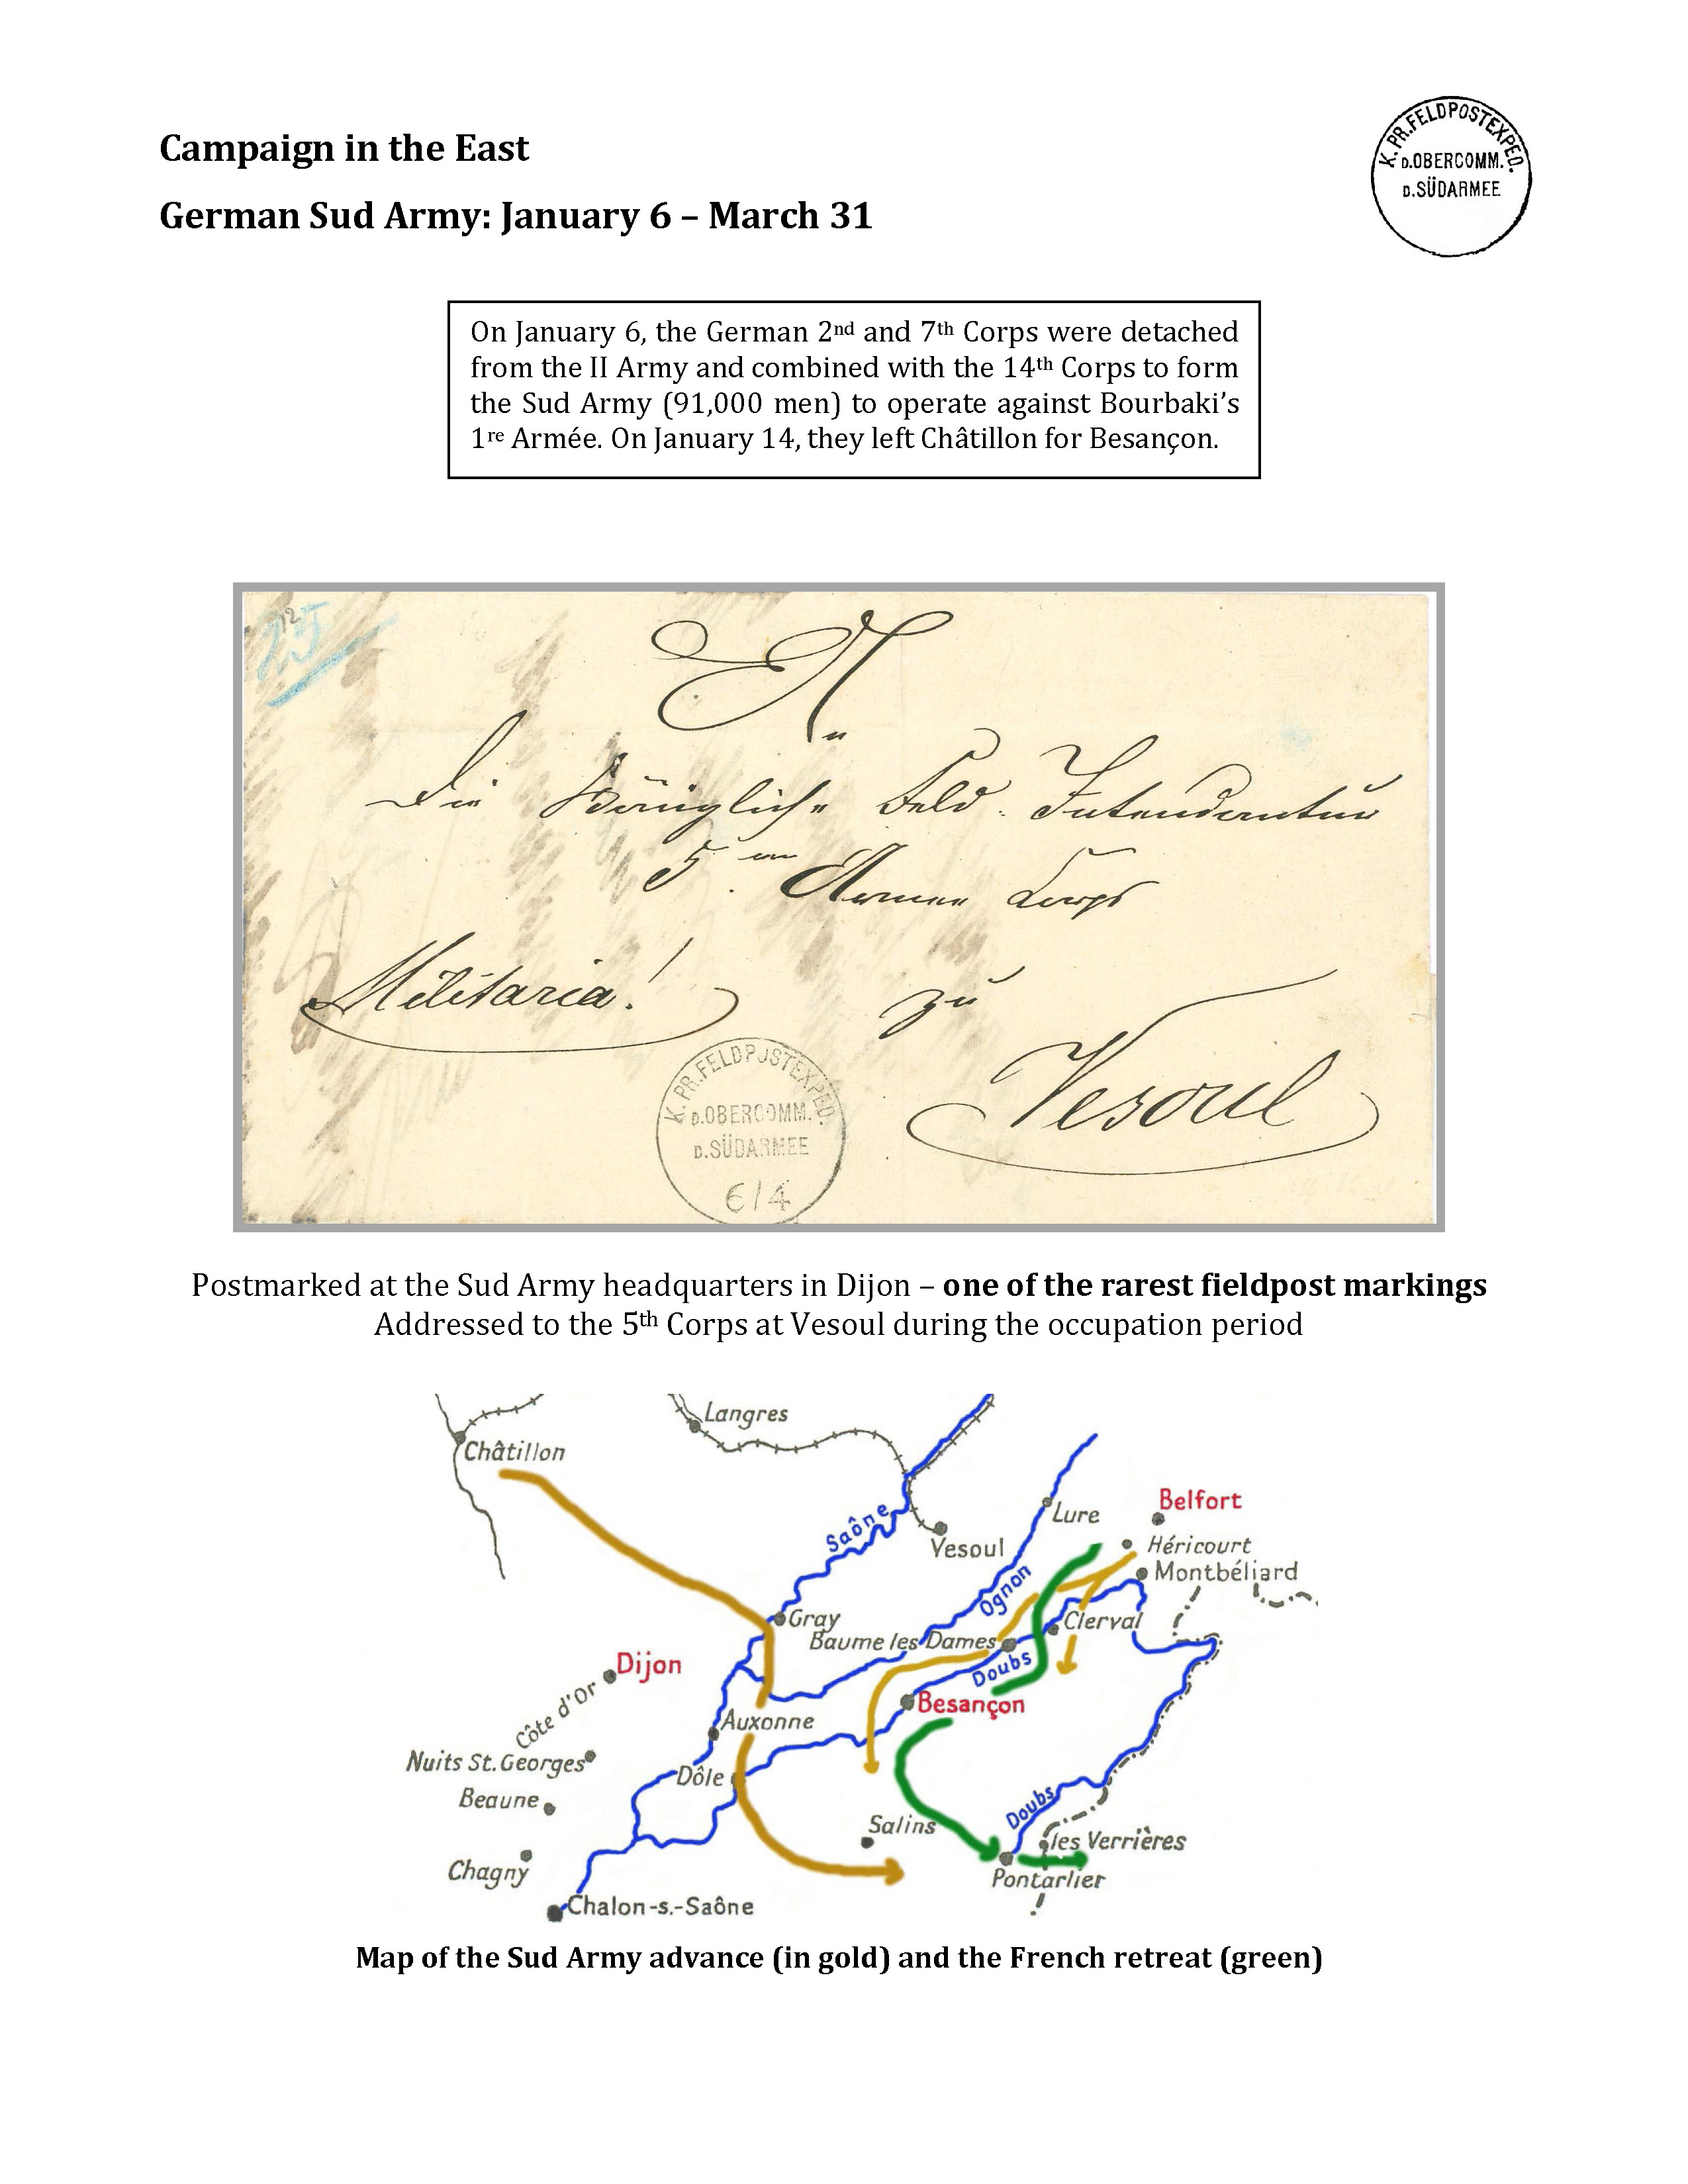 Campaign in the East
German Sud Army: January 6 – March 31
K. PR. FELDPOSTEXPED.
D.OBERCOMM.
D.SÜDARMEE
On January 6, the German 2nd and 7th Corps were detached
from the II Army and combined with the 14th Corps to form
the Sud Army (91,000 men) to operate against Bourbaki's
1re Armée. On January 14, they left Châtillon for Besançon.
12
25
An
Die Königliche Feld-Intendantur
5ten Armee Corps
Militaria!
zu
Vesoul
K. PR. FELDPOSTEXPED.
D.OBERCOMM.
D.SÜDARMEE
6/4
Postmarked at the Sud Army headquarters in Dijon – one of the rarest fieldpost markings
Addressed to the 5th Corps at Vesoul during the occupation period
Langres
Châtillon
Saône
Vesoul
Lure
Belfort
Héricourt
Montbéliard
Ognon
Gray
Clerval
Baume les Dames
Doubs
Dijon
Côte d'Or
Besançon
Auxonne
Nuits St. Georges
Dôle
Beaune
Doubs
Salins
les Verrières
Chagny
Pontarlier
Chalon-s.-Saône
Map of the Sud Army advance (in gold) and the French retreat (green)